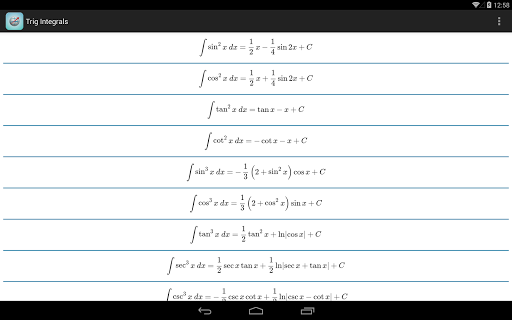 12:58
Trig Integrals
∫ sin² x dx = 1/2 x − 1/4 sin 2x + C
∫ cos² x dx = 1/2 x + 1/4 sin 2x + C
∫ tan² x dx = tan x − x + C
∫ cot² x dx = − cot x − x + C
∫ sin³ x dx = − 1/3 (2 + sin² x) cos x + C
∫ cos³ x dx = 1/3 (2 + cos² x) sin x + C
∫ tan³ x dx = 1/2 tan² x + ln|cos x| + C
∫ sec³ x dx = 1/2 sec x tan x + 1/2 ln|sec x + tan x| + C
∫ csc³ x dx = − 1/2 csc x cot x + 1/2 ln|csc x − cot x| + C